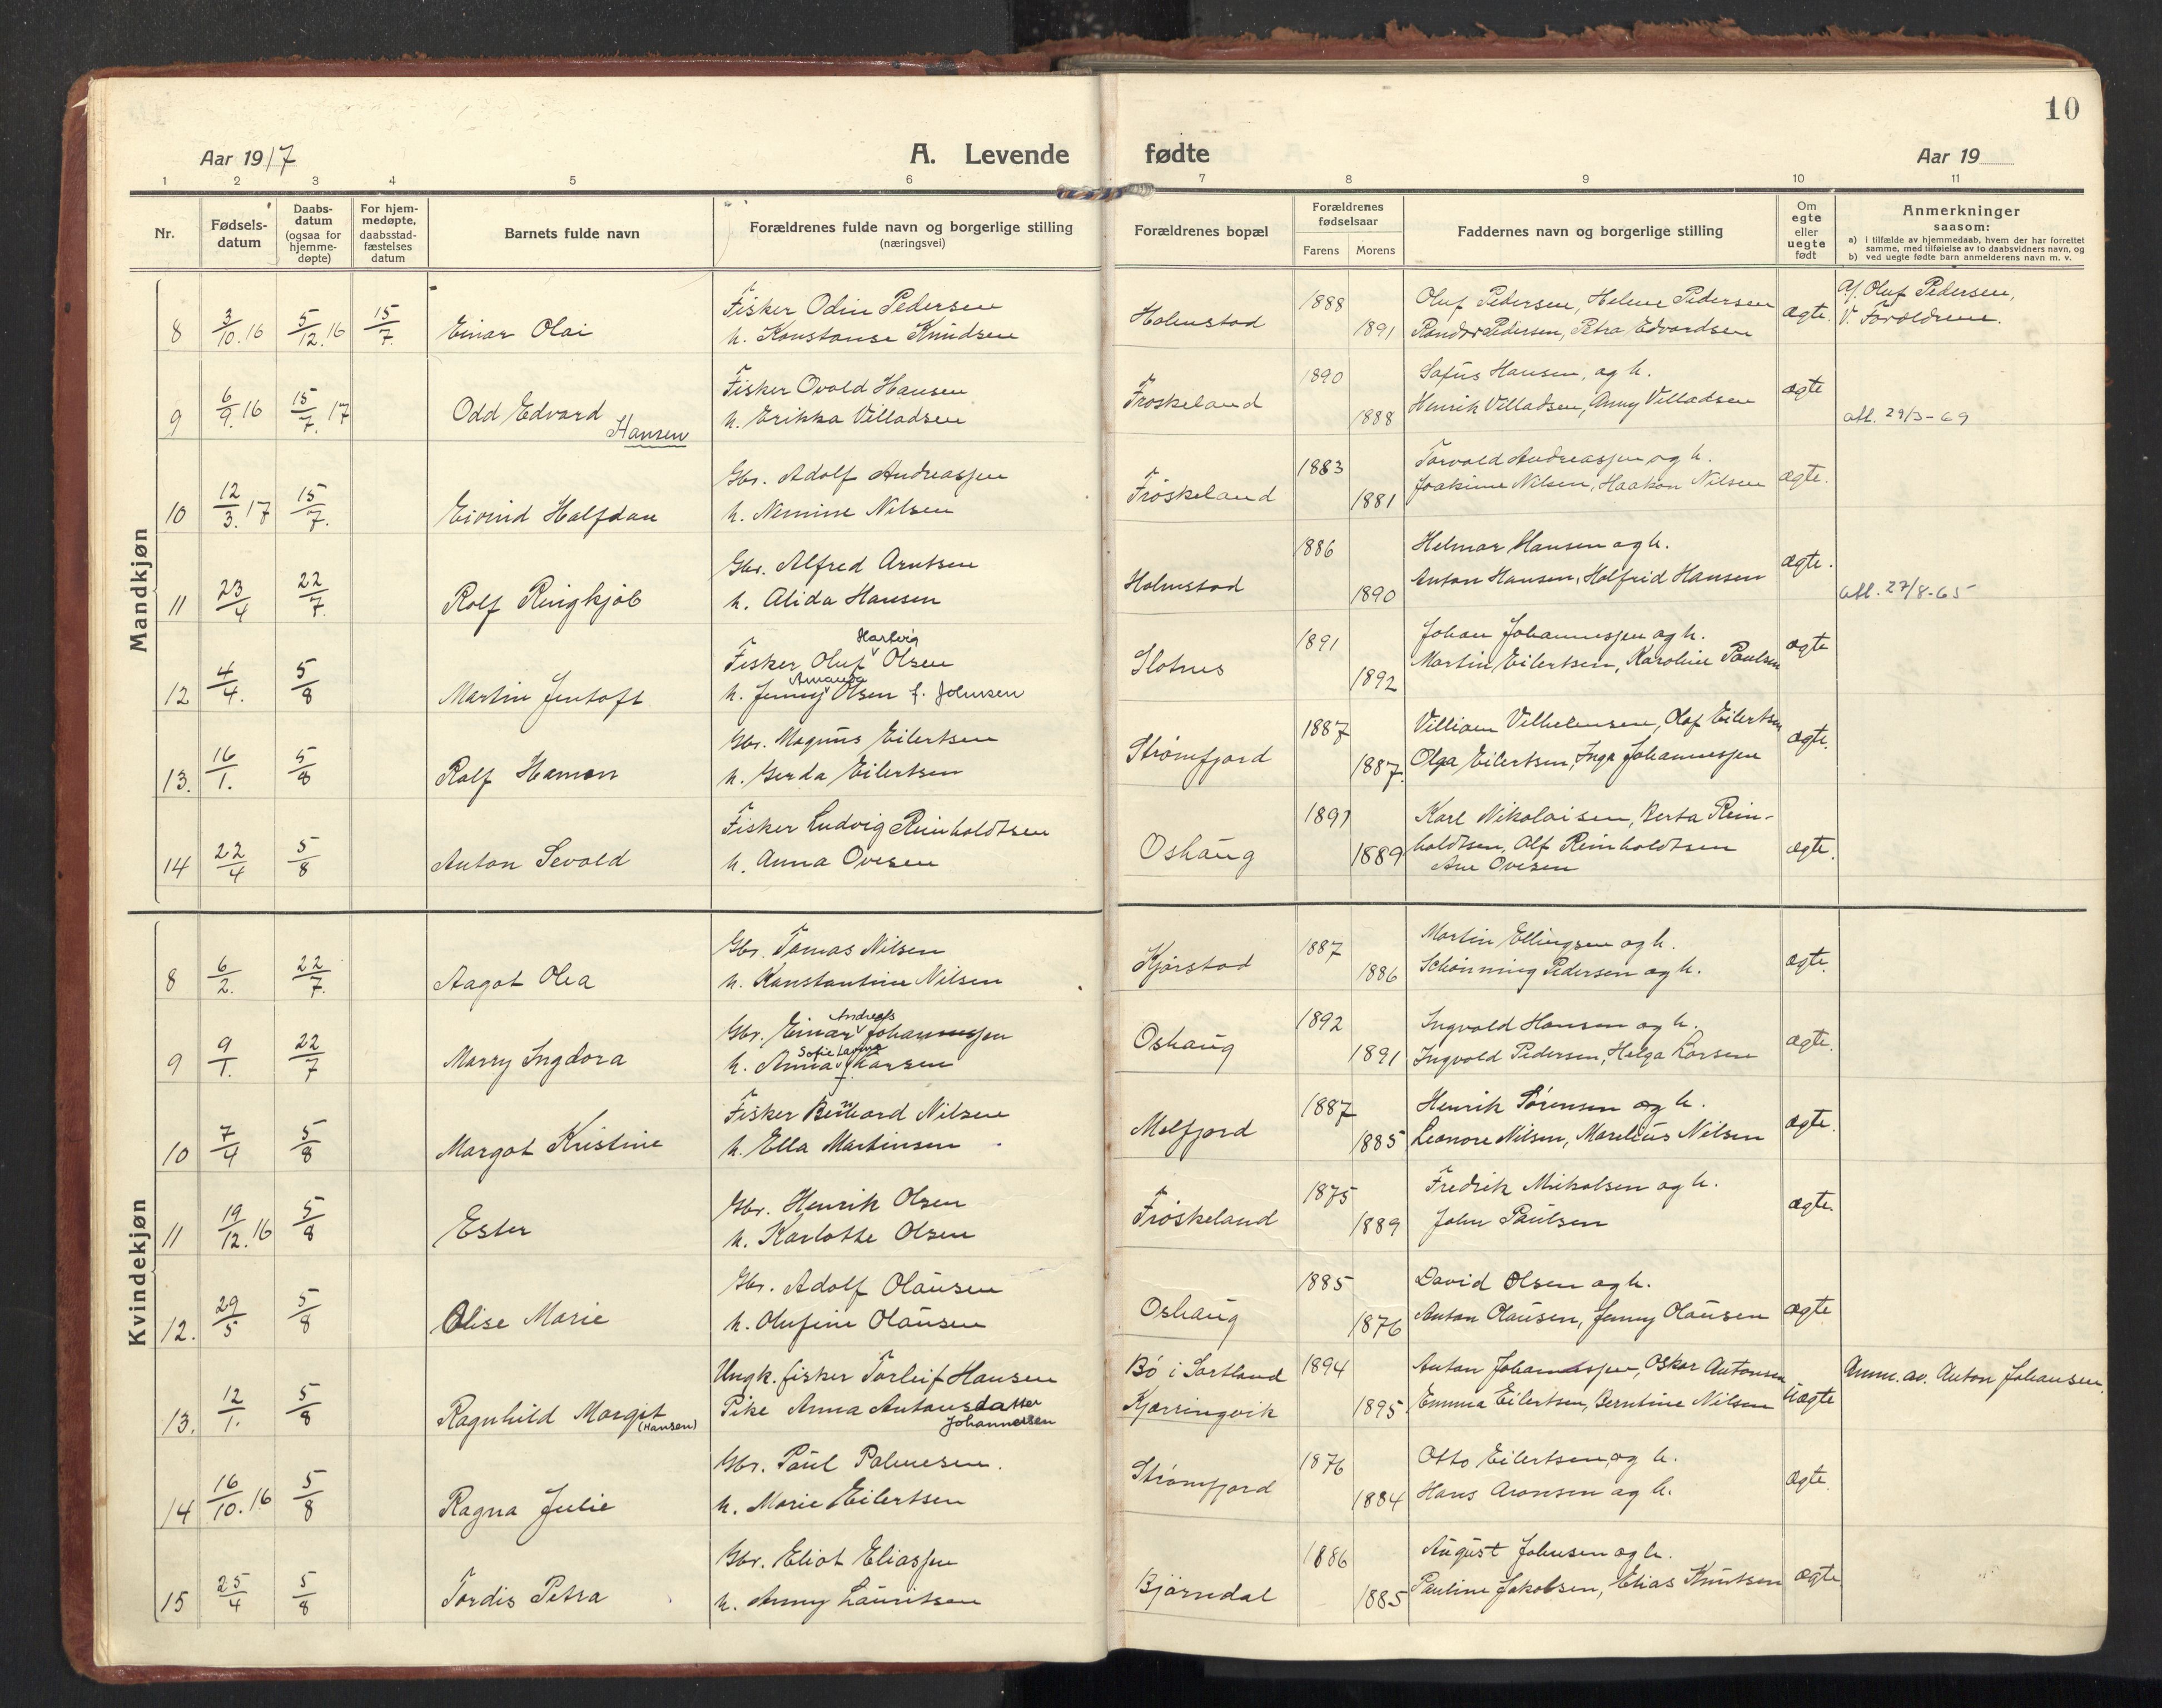 10
Aar 1917
A. Levende fødte
Aar 19
1 2 3 4 5 6 7 8 9 10 11
Nr.
Fødsels-
datum
Daabs-
datum
(ogsaa for
hjemme-
døpte)
For hjem-
medøpte,
daabsstad-
fæstelses
datum
Barnets fulde navn
Forældrenes fulde navn og borgerlige stilling
(næringsvei)
Forældrenes bopæl
Forældrenes
fødselsaar
Farens Morens
Faddernes navn og borgerlige stilling
Om
egte
eller
uegte
født
Anmerkninger
saasom:
a) i tilfælde av hjemmedaab, hvem der har forrettet
samme, med tilføielse av to daabsvidners navn, og
b) ved uegte fødte barn anmelderens navn m. v.
Mandkjøn
8 3/10.16 5/12.16 15/7. Einar Olai
Fisker Odin Pedersen
h. Konstanse Knudsen
Holmstad 1888 1891
Oluf Pedersen, Helene Pedersen
Pedersen, Petra Edvardsen
ægte.
Af. Oluf Pedersen,
V. Forældrene.
9 6/9.16 15/7.17 Odd Edvard
Hansen
Fisker Ovald Hansen
h. Erikka Villadsen
Frøskeland 1890 1888
Sofus Hansen, og h.
Henrik Villadsen, Anny Villadsen
ægte
att. 29/3-69
10 12/3.17 15/7. Eivind Halfdan
Gbr. Adolf Andreassen
h. Nimine Nilsen
Frøskeland 1883 1881
Torvald Andreassen og h.
Joakime Nilsen, Haakon Nilsen
ægte.
11 23/4 22/7. Rolf Ringkjøb
Gbr. Alfred Arntsen
h. Alida Hansen
Holmstad 1886 1890
Helmar Hansen og h.
Anton Hansen, Holfrid Hansen
ægte.
att. 27/8-65
12 4/4. 5/8 Martin Jentoft
Hartvig
Fisker Oluf Olsen
Amanda
h. Jenny Olsen f. Johnsen
Slotnes 1891 1892
Johan Johannessen og h.
Martin Eilertsen, Karoline Paulsen
ægte
13. 16/1. 5/8 Rolf Hamon
Gbr. Magnus Eilertsen
h. Gerda Eilertsen
Strømfjord 1887 1887.
Villiam Vilhelmsen, Olaf Eilertsen
Olga Eilertsen, Inga Johannessen
ægte.
14 22/4 5/8 Anton Sevald
Fisker Ludvig Reinholdtsen
h. Anna Ovesen
Oshaug 1891 1889
Karl Nikolaisen, Berta Rein-
holdtsen, Alf Reinholdtsen
Ane Ovesen
ægte.
Kvindekjøn
8 6/2. 22/7. Aagot Olea
Gbr. Tomas Nilsen
h. Konstantine Nilsen
Kjørstad 1887 1886
Martin Ellingsen og h.
Schønning Pedersen og h.
ægte.
9 9/1. 22/7 Marry Ingdora
Andreas
Gbr. Einar Johannessen
Sofie Larine
h. Anna Larsen
Oshaug 1892 1891
Ingvald Hansen og h.
Ingvold Pedersen, Helga Larsen
ægte.
10 7/4 5/8 Margot Kristine
Fisker Bernhard Nilsen
h. Ella Martinsen
Melfjord 1887 1885
Henrik Sørensen og h.
Leonore Nilsen, Marelius Nilsen
ægte.
11 19/12.16 5/8 Ester
Gbr. Henrik Olsen
h. Karlotte Olsen
Frøskeland 1875 1889
Fredrik Mikalsen og h.
John Paulsen
ægte.
12. 29/5 5/8 Olise Marie
Gbr. Adolf Olausen
h. Olufine Olausen
Oshaug 1885 1876
David Olsen og h.
Anton Olausen, Jenny Olausen
ægte
13. 12/1. 5/8 Ragnhild Margit
(Hansen)
Ungk. fisker Torleif Hansen
Pike Anna Antonsdatter
Johannesen
Bø i Sortland
Kjærringvik
1894 1895
Anton Johansen, Oskar Antonsen
Emma Eilertsen, Berntine Nilsen
uægte
Anm. av. Anton Johansen.
14 16/10.16 5/8 Ragna Julie
Gbr. Paul Palmesen.
h. Marie Eilertsen
Strømfjord 1876 1884
Otto Eilertsen og h.
Hans Aronsen og h.
ægte.
15 25/4 5/8 Tordis Petra
Gbr. Eliot Eliassen
h. Anny Lauritsen
Bjørndal 1886 1885
August Johnsen og h.
Pauline Jakobsen, Elias Knutsen
ægte